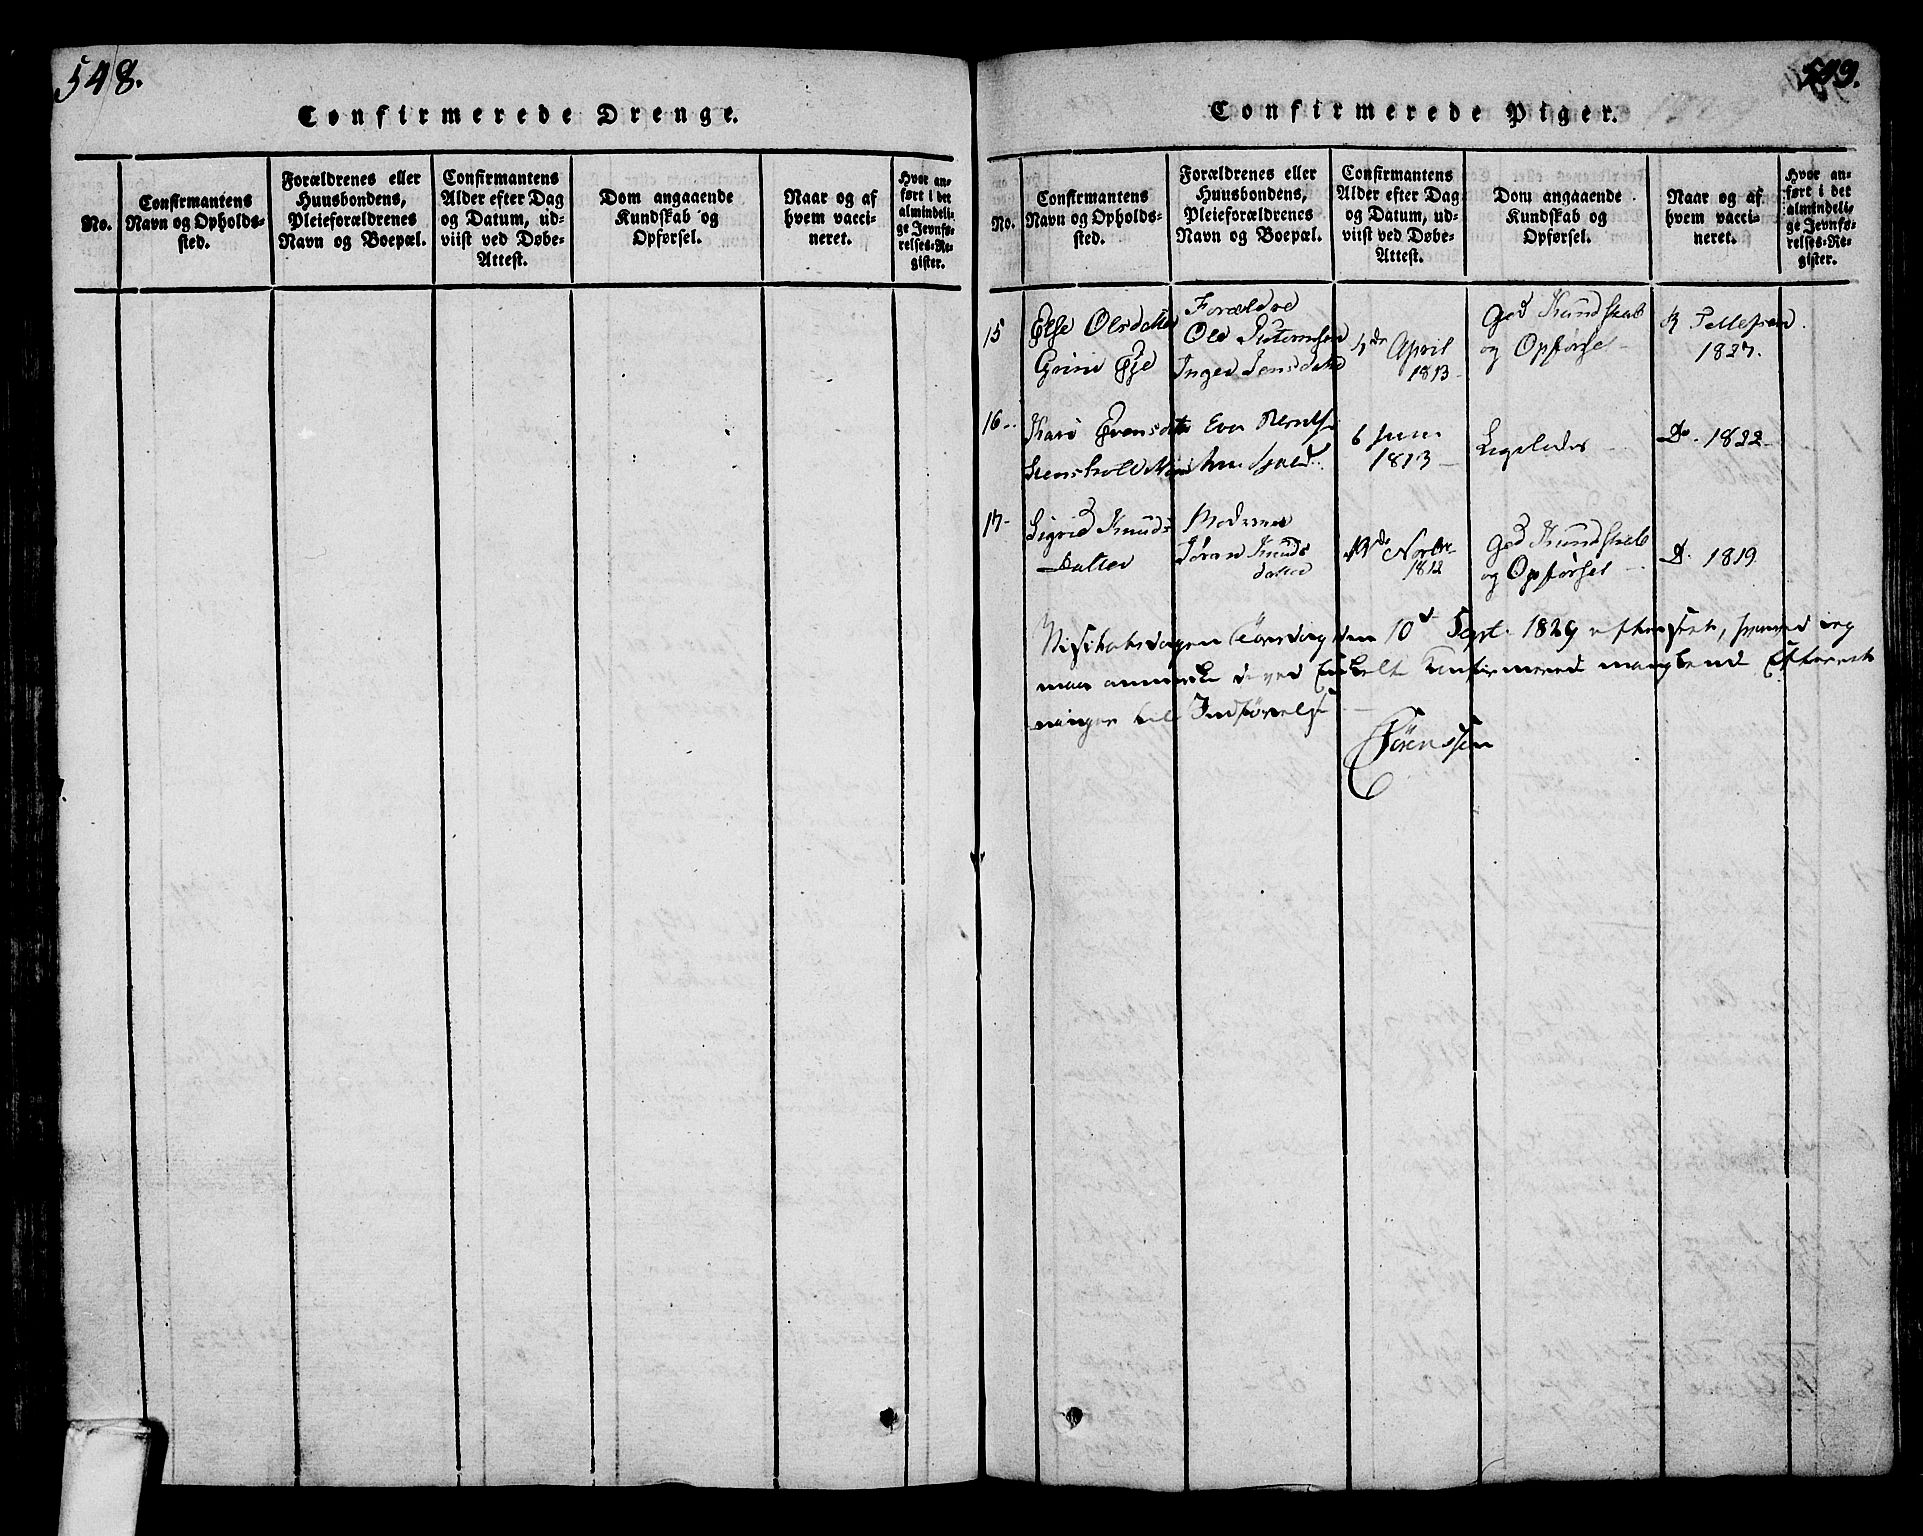 548.
Confirmerede Drenge.
No.
Confirmantens
Navn og Opholds-
sted.
Forældrenes eller
Huusbondens,
Pleieforældrenes
Navn og Boepæl.
Confirmantens
Alder efter Dag
og Datum, ud-
viist ved Døbe-
Attest.
Dom angaaende
Kundskab og
Opførsel.
Naar og af
hvem vacci-
neret.
Hvor an-
ført i det
almindeli-
ge Jevnfø-
relses-Re-
gister.
549.
Confirmerede Piger.
No.
Confirmantens
Navn og Opholds-
sted.
Forældrenes eller
Huusbondens,
Pleieforældrenes
Navn og Boepæl.
Confirmantens
Alder efter Dag
og Datum, ud-
viist ved Døbe-
Attest.
Dom angaaende
Kundskab og
Opførsel.
Naar og af
hvem vacci-
neret.
Hvor an-
ført i det
almindeli-
ge Jevnfø-
relses-Re-
gister.
15
Else Olsdatter
Grini Eje
Forældre
Ole
Inger Jensdatter
April
1813
God Kundskab
og Opførsel
Tellefsen
1827.
16
Kari Evensdatter
6 Juni
1813
Ligeledes
Do. 1822
17
Sigrid Knuds
Datter
Moderen
Jøran Knuds
datter
Novbr
1812
God Kundskab
og Opførsel
D. 1819
Visitatsdagen Torsdag den 10d Sept. 1829 efterseet, hvorved jeg
maa anmærke ved Enkelte Confirmerede manglende Efterret-
ninger til Indførelse
Sørenssen